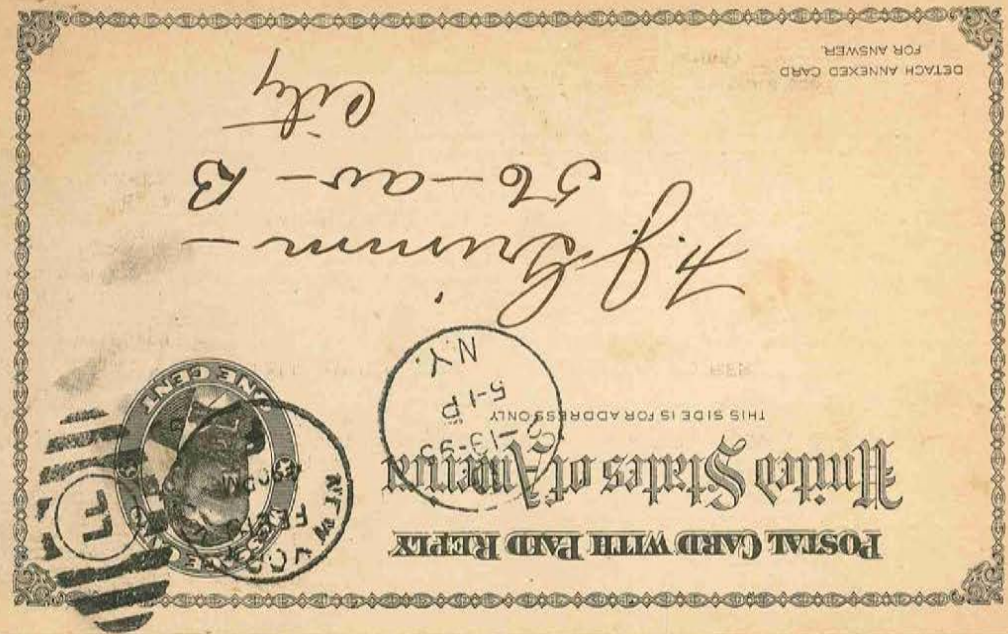 POSTAL CARD WITH PAID REPLY
United States of America
THIS SIDE IS FOR ADDRESS ONLY
ONE CENT
NEW YORK
FEB
PM
LL
2-13-95
5-1P
N.Y.
F. J. Grimm -
56 - av - B
City
DETACH ANNEXED CARD
FOR ANSWER.